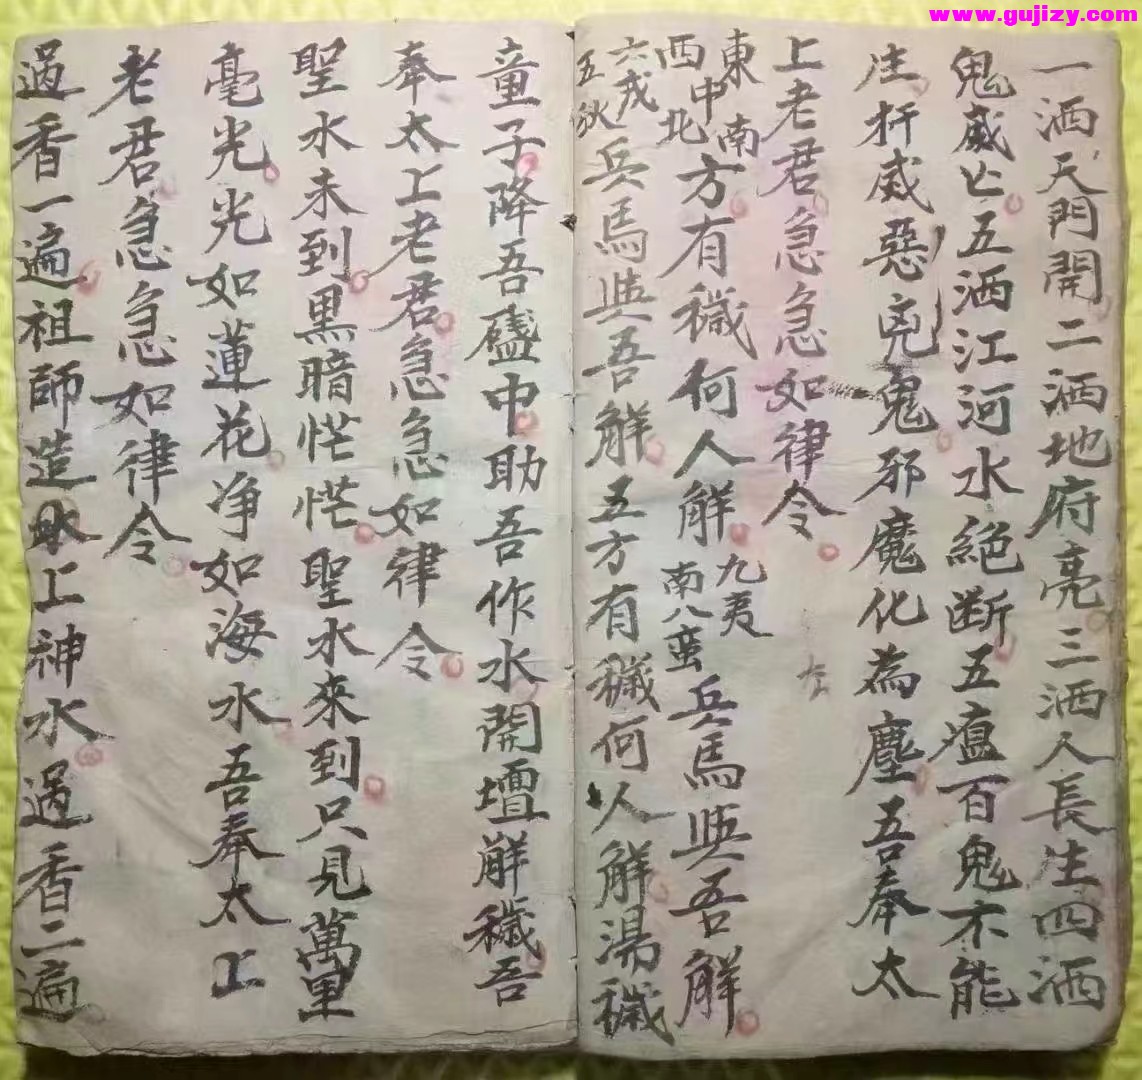 www.gujizy.com
一洒天門開二洒地府亮三洒人長生四洒
鬼威亡五洒江河水絕断五瘟百鬼不能
生扦威惡鬼邪魔化為塵吾奉太
上老君急急如律令
東南中西北方有穢何人解九夷南八蛮兵馬與吾解
六戎五狄兵馬與吾解五方有穢何人解湯穢
童子降吾盏中助吾作水開壇解穢吾
奉太上老君急急如律令
聖水未到黑暗忙忙聖水來到只見萬里
毫光光如蓮花净如海水吾奉太上
老君急急如律令
過香一遍祖師造水上神水過香二遍